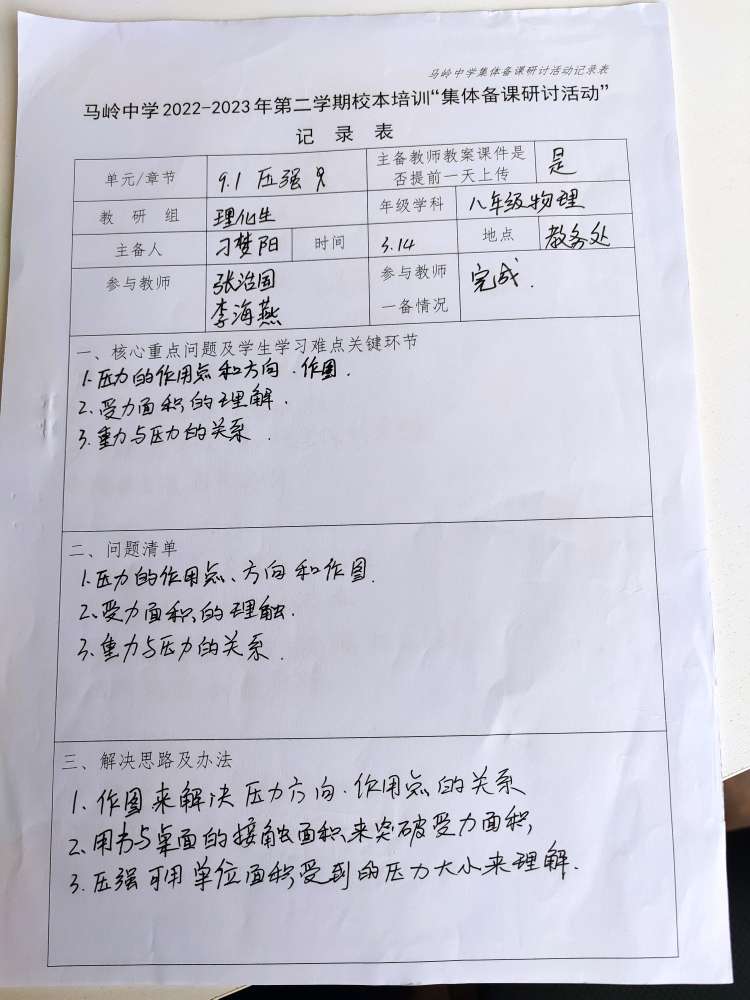 马岭中学集体备课研讨活动记录表
马岭中学2022-2023年第二学期校本培训“集体备课研讨活动”
记 录 表
单元/章节 9.1 压强 主备教师教案课件是否提前一天上传 是
教 研 组 理化生 年级学科 八年级物理
主备人 刁梦阳 时间 3.14 地点 教务处
参与教师 张治国 李海燕 参与教师一备情况 完成.
一、核心重点问题及学生学习难点关键环节
1.压力的作用点和方向.作图.
2.受力面积的理解.
3.重力与压力的关系.
二、问题清单
1.压力的作用点、方向和作图.
2.受力面积的理触.
3.重力与压力的关系.
三、解决思路及办法
1.作图来解决压力方向.作用点的关系
2.用书与桌面的接触面积来突破受力面积,
3.压强可用单位面积受到的压力大小来理解.